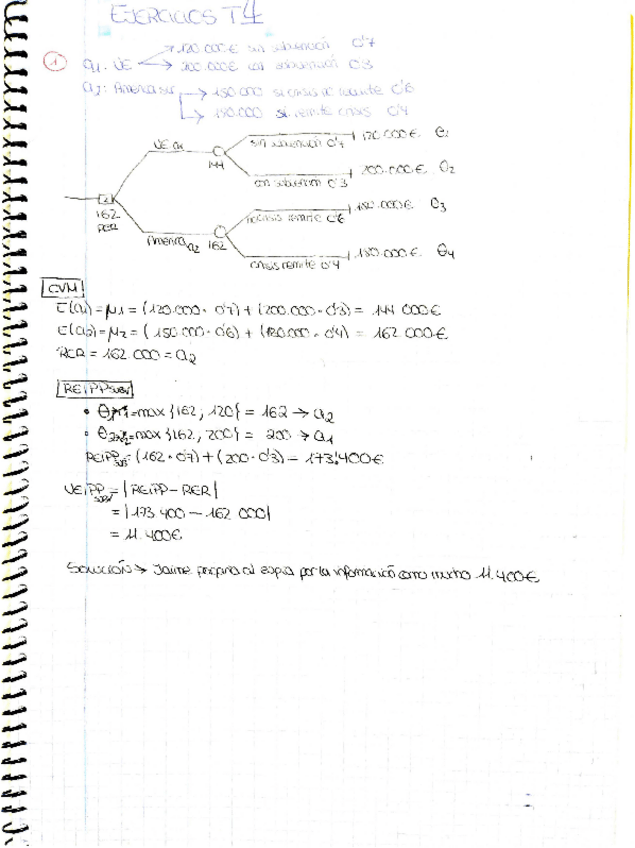 EJERCICIOS T4
1
a1: UE → 120.000€ sin subvención 0'7
→ 200.000€ con subvención 0'3
a2: América sur → 150.000 si crisis no remite 0'6
→ 180.000 si remite crisis 0'4
UE a1
144
sin subvención 0'7
120.000€ θ1
con subvención 0'3
200.000€ θ2
162
RER
América a2
162
no crisis remite 0'6
150.000€ θ3
crisis remite 0'4
180.000€ θ4
CVM
E(a1)=μ1 = (120.000 · 0'7) + (200.000 · 0'3) = 144 000€
E(a2)=μ2 = (150.000 · 0'6) + (180.000 · 0'4) = 162.000€
RER = 162.000 = a2
REIPP subv
• =max {162, 120} = 162 → a2
• =max {162, 200} = 200 → a1
REIPP subv = (162 · 0'7) + (200 · 0'3) = 173'400€
VEIPP subv = |REIPP - RER|
= |173.400 - 162 000|
= 11.400€
SOLUCIÓN → Jaime al espía por la información como mucho 11.400€